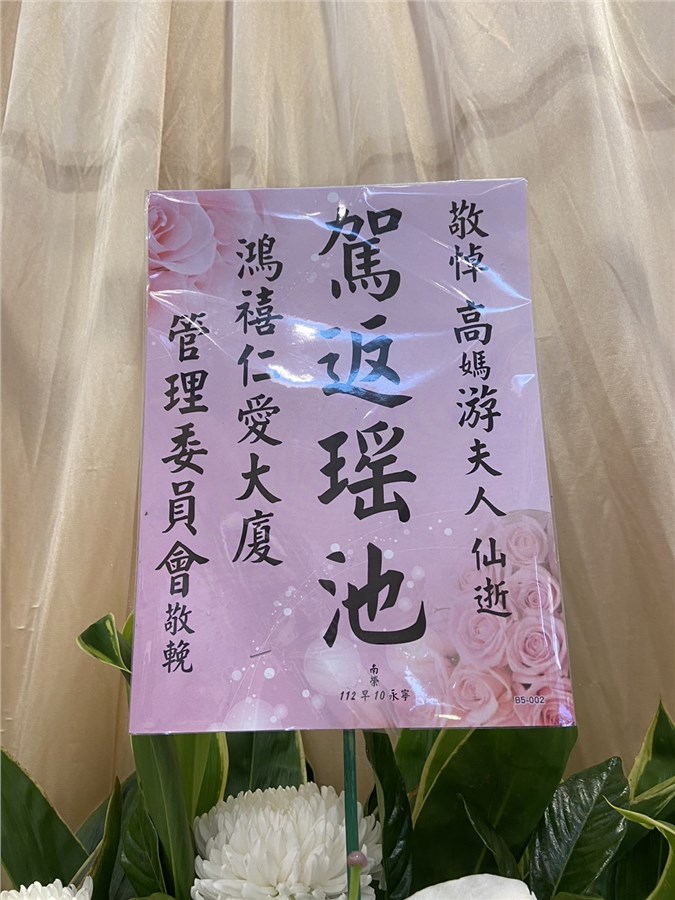 敬悼 高媽游夫人 仙逝
駕返瑤池
鴻禧仁愛大廈
管理委員會敬輓
南榮
112早10永寧
B5-002